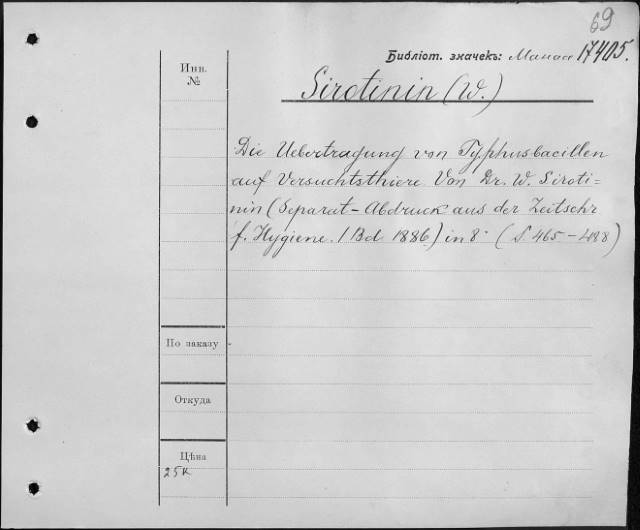 69
Библіот. значекъ: 17405.
Инв.
№
Sirotinin (W.)
Die Uebertragung von Typhusbacillen
auf Versuchtsthiere. Von Dr. W. Siroti=
nin (Separat-Abdruck aus der Zeitschr
f. Hygiene. 1 Bd. 1886.) in 8° (S. 465-488)
По заказу
Откуда
Цѣна
25к